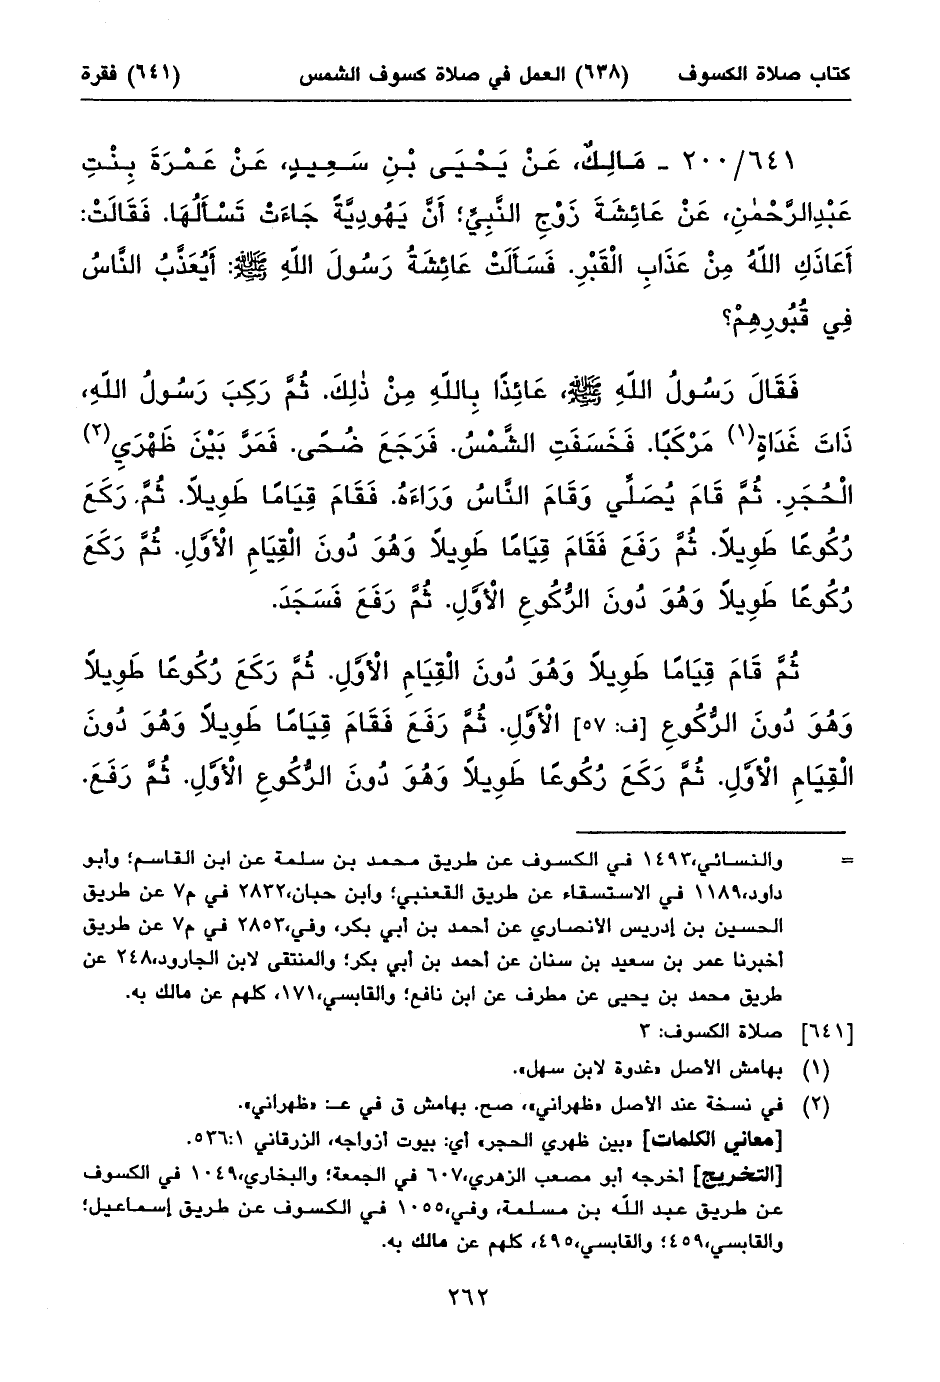 كتاب صلاة الكسوف (٦٣٨) العمل في صلاة كسوف الشمس (٦٤١) فقرة
٢٠٠/٦٤١ - مَالِكٌ، عَنْ يَحْيَى بْنِ سَعِيدٍ، عَنْ عَمْرَةَ بِنْتِ
عَبْدِالرَّحْمٰنِ، عَنْ عَائِشَةَ زَوْجِ النَّبِيِّ؛ أَنَّ يَهُودِيَّةً جَاءَتْ تَسْأَلُهَا. فَقَالَتْ:
أَعَاذَكِ اللّهُ مِنْ عَذَابِ الْقَبْرِ. فَسَأَلَتْ عَائِشَةُ رَسُولَ اللّهِ ﷺ: أَيُعَذَّبُ النَّاسُ
فِي قُبُورِهِمْ؟
فَقَالَ رَسُولُ اللّهِ ﷺ، عَائِذًا بِاللّهِ مِنْ ذٰلِكَ. ثُمَّ رَكِبَ رَسُولُ اللّهِ،
ذَاتَ غَدَاةٍ(١) مَرْكَبًا. فَخَسَفَتِ الشَّمْسُ. فَرَجَعَ ضُحًى. فَمَرَّ بَيْنَ ظَهْرَيِ(٢)
الْحُجَرِ. ثُمَّ قَامَ يُصَلِّي وَقَامَ النَّاسُ وَرَاءَهُ. فَقَامَ قِيَامًا طَوِيلاً. ثُمَّ. رَكَعَ
رُكُوعًا طَوِيلاً. ثُمَّ رَفَعَ فَقَامَ قِيَامًا طَوِيلاً وَهُوَ دُونَ الْقِيَامِ الْأَوَّلِ. ثُمَّ رَكَعَ
رُكُوعًا طَوِيلاً وَهُوَ دُونَ الرُّكُوعِ الْأَوَّلِ. ثُمَّ رَفَعَ فَسَجَدَ.
ثُمَّ قَامَ قِيَامًا طَوِيلاً وَهُوَ دُونَ الْقِيَامِ الْأَوَّلِ. ثُمَّ رَكَعَ رُكُوعًا طَوِيلاً
وَهُوَ دُونَ الرُّكُوعِ [ف: ٥٧] الْأَوَّلِ. ثُمَّ رَفَعَ فَقَامَ قِيَامًا طَوِيلاً وَهُوَ دُونَ
الْقِيَامِ الْأَوَّلِ. ثُمَّ رَكَعَ رُكُوعًا طَوِيلاً وَهُوَ دُونَ الرُّكُوعِ الْأَوَّلِ. ثُمَّ رَفَعَ.
= والنسائي،١٤٩٣ في الكسوف عن طريق محمد بن سلمة عن ابن القاسم؛ وأبو
داود،١١٨٩ في الاستسقاء عن طريق القعنبي؛ وابن حبان،٢٨٣٢ في م٧ عن طريق
الحسين بن إدريس الأنصاري عن أحمد بن أبي بكر، وفي،٢٨٥٣ في م٧ عن طريق
أخبرنا عمر بن سعيد بن سنان عن أحمد بن أبي بكر؛ والمنتقى لابن الجارود،٢٤٨ عن
طريق محمد بن يحيى عن مطرف عن ابن نافع؛ والقابسي،١٧١، كلهم عن مالك به.
[٦٤١] صلاة الكسوف: ٣
(١) بهامش الأصل «غدوة لابن سهل».
(٢) في نسخة عند الأصل «ظهراني»، صح. بهامش ق في عـ: «ظهراني».
[معاني الكلمات] «بين ظهري الحجر» أي: بيوت أزواجه، الزرقاني ٥٣٦:١.
[التخريج] أخرجه أبو مصعب الزهري،٦٠٧ في الجمعة؛ والبخاري،١٠٤٩ في الكسوف
عن طريق عبد اللّه بن مسلمة، وفي،١٠٥٥ في الكسوف عن طريق إسماعيل؛
والقابسي،٤٥٩؛ والقابسي،٤٩٥، كلهم عن مالك به.
٢٦٢